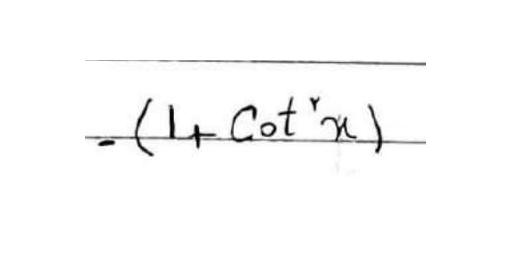 -(1+ Cot²x)